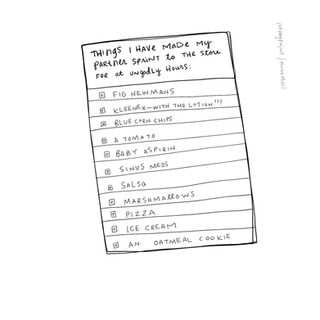 THINGS I HAVE MADE MY
PARTNER SPRINT TO THE STORE
FOR AT UNGODLY HOURS:
FIG NEWMANS
KLEENEX—WITH THE LOTION!!!
BLUE CORN CHIPS
A TOMATO
BABY ASPIRIN
SINUS MEDS
SALSA
MARSHMALLOWS
PIZZA
ICE CREAM
AN OATMEAL COOKIE